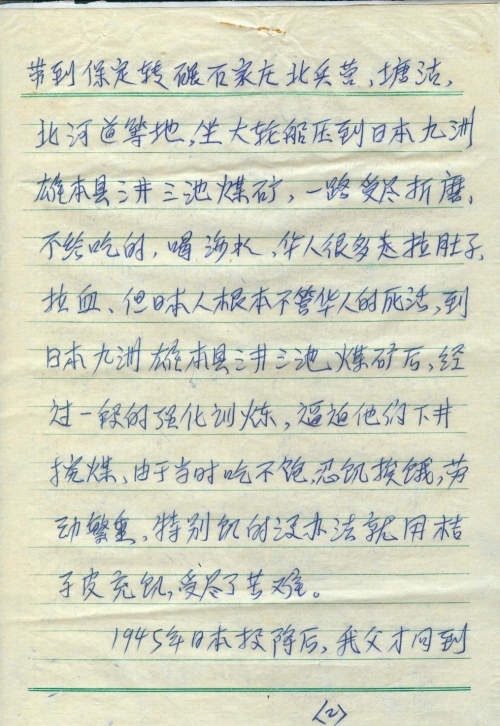 带到保定转碾石家庄北兵营、塘沽，
北河道等地，坐大轮船压到日本九洲
雄本县三井三池煤矿，一路受尽折磨，
不给吃的，喝海水、华人很多是拉肚子，
拉血、但日本人根本不管华人的死活，到
日本九洲雄本县三井三池煤矿后，经
过一段的强化训炼，逼迫他们下井
挖煤，由于当时吃不饱，忍饥挨饿，劳
动繁重，特别饥的没办法就用桔
子皮充饥，受尽了苦难。
1945年日本投降后，我父才回到
(2)